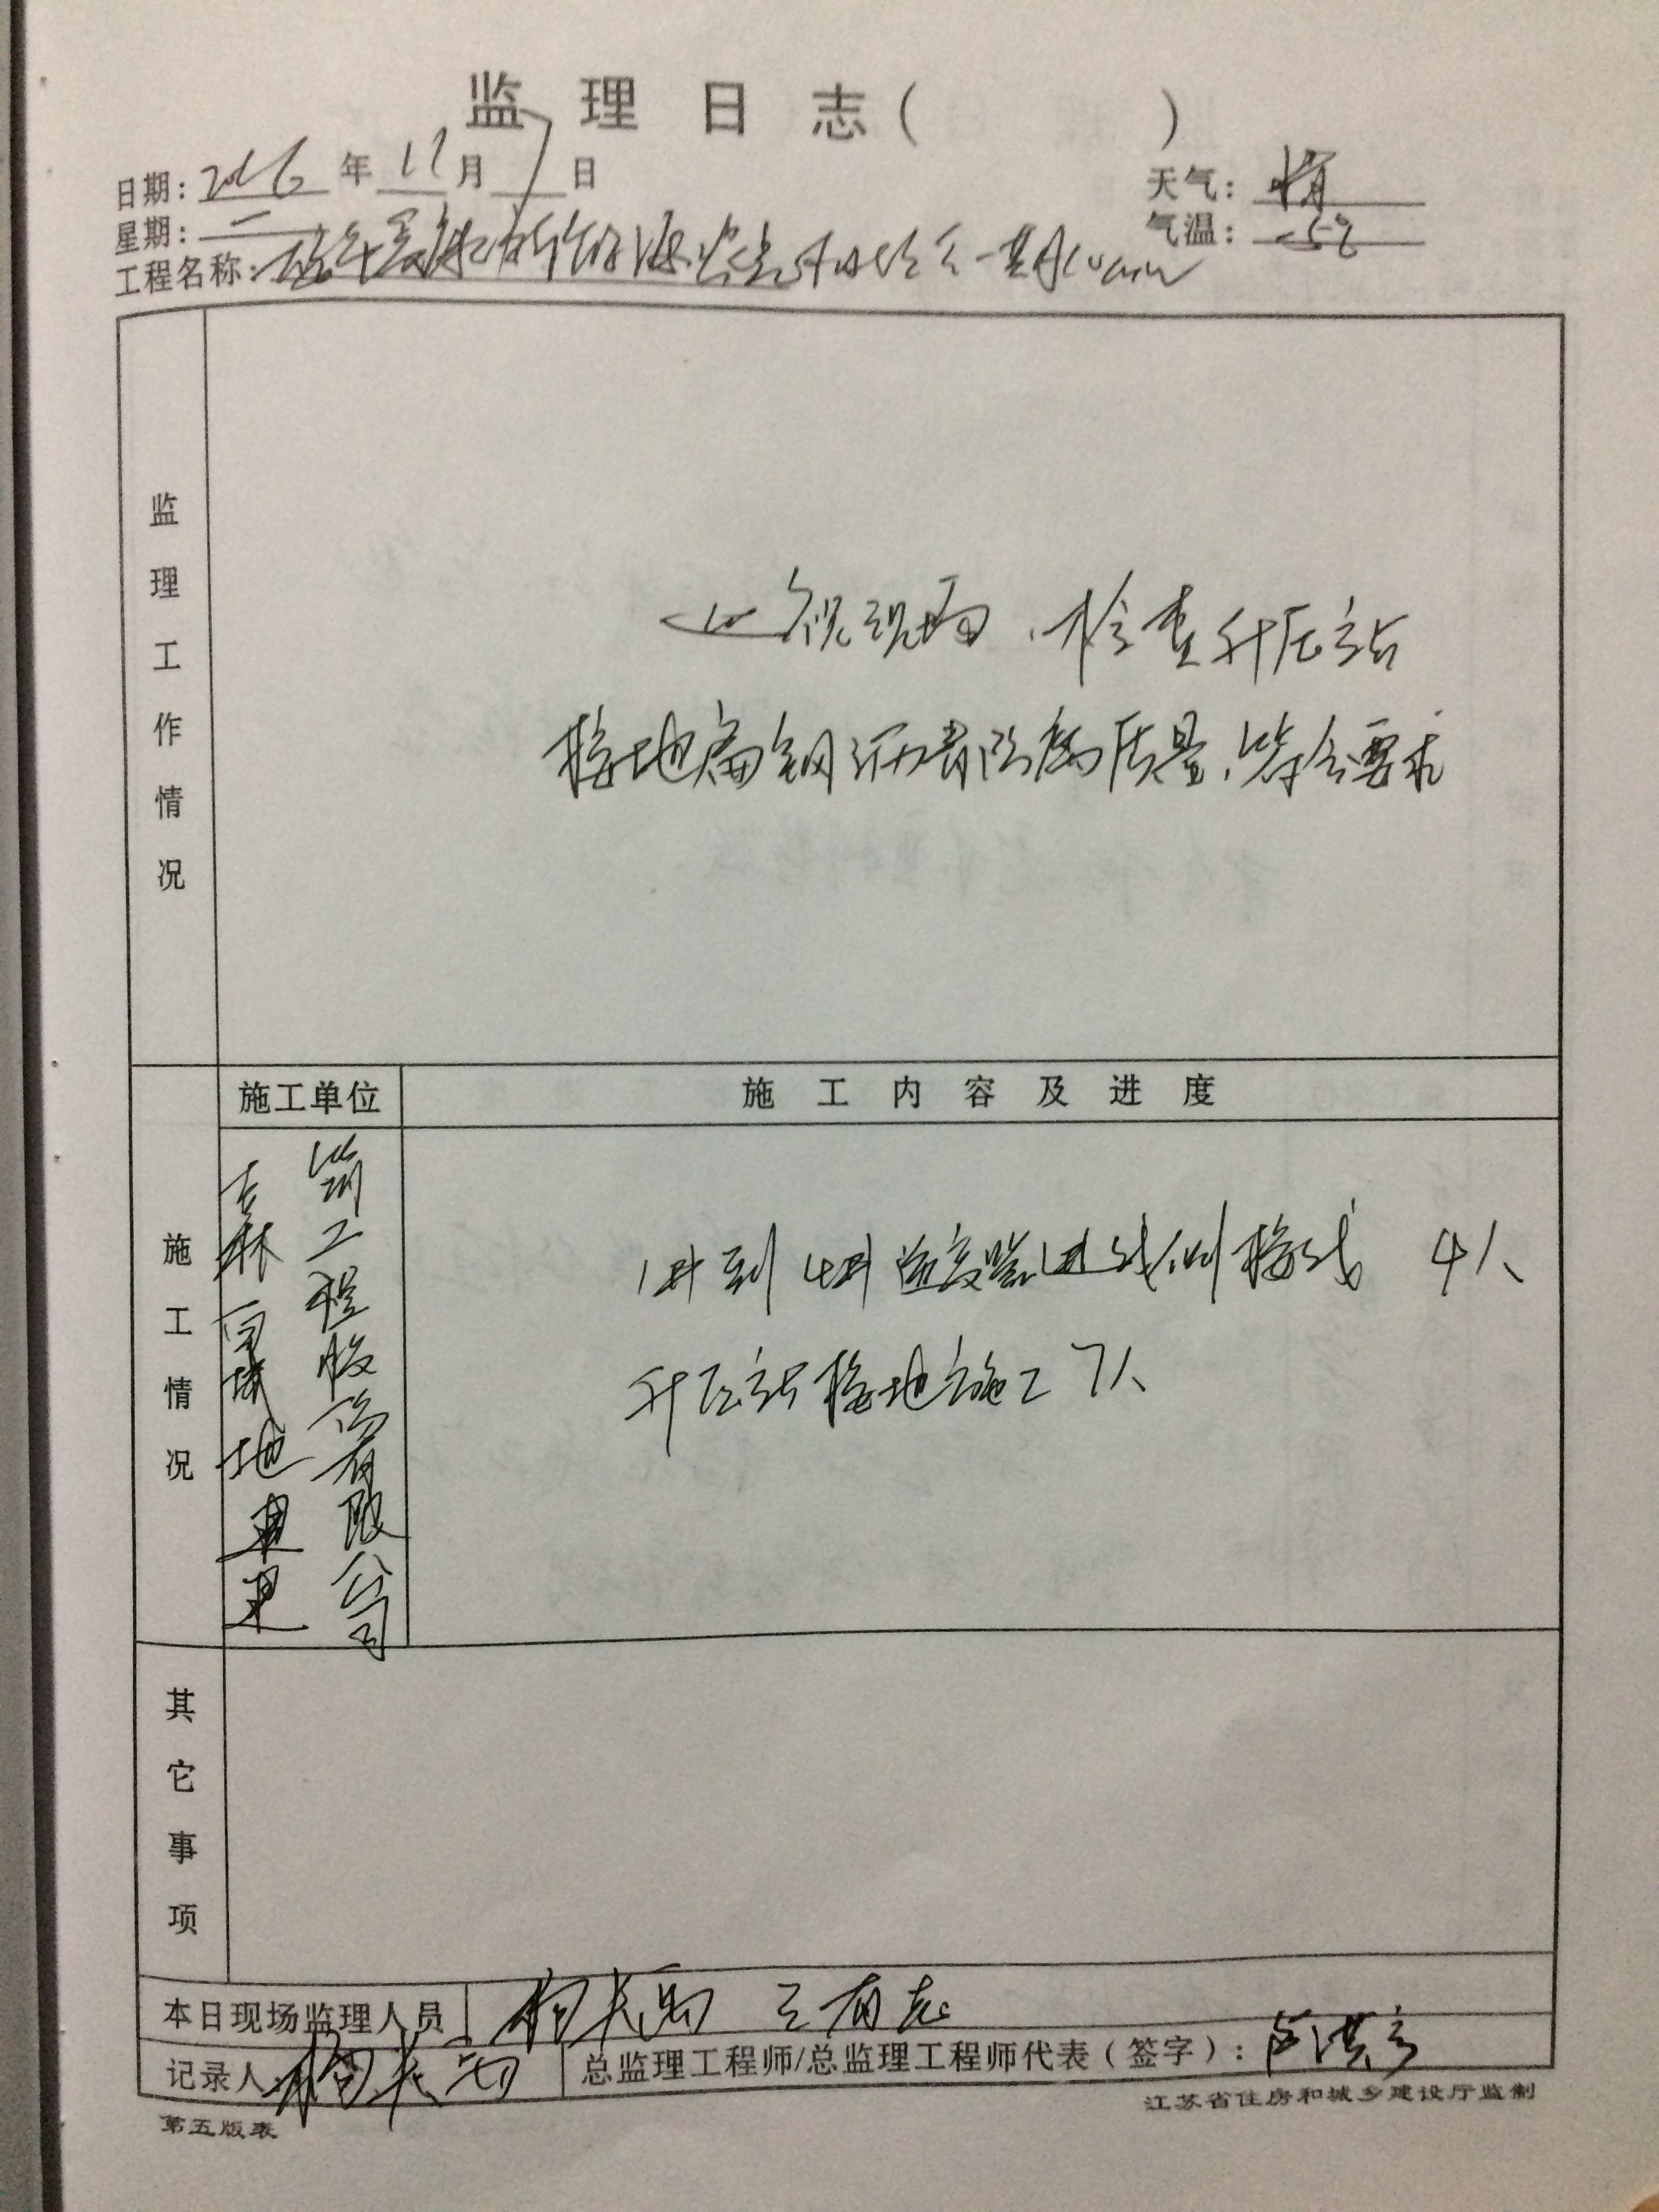 监理日志（ ）
日期：2016年12月7日
天气：晴
星期：二
气温：-5℃
工程名称：
监理工作情况
巡视现场，检查升压站
接地扁钢沥青防腐质量，符合要求
施工单位
施工内容及进度
施工情况
吉林 地 建
筑工程股份有限公司
1#到4#逆变器进线侧接线 4人
升压站接地施工 7人
其它事项
本日现场监理人员 王有志
记录人：
总监理工程师/总监理工程师代表（签字）：
江苏省住房和城乡建设厅监制
第五版表